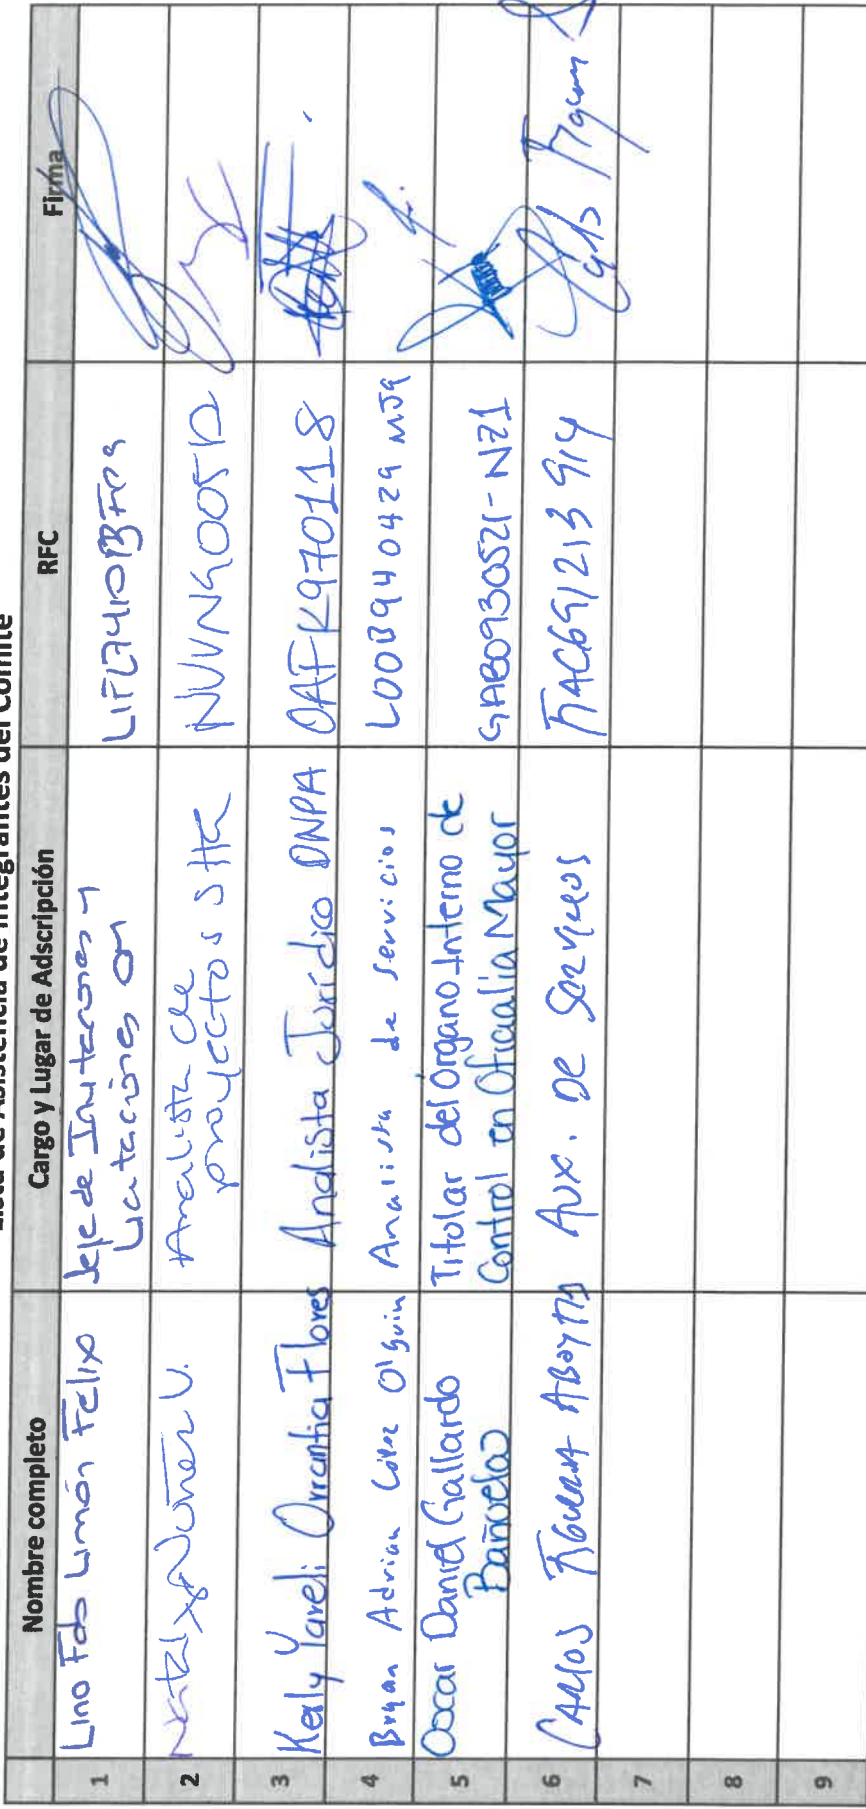 Lista de Asistencia de Integrantes del Comité
Nombre completo Cargo y Lugar de Adscripción RFC Firma
1 Lino Fdo Limón Felix Jefe de Invitaciones y
Licitaciones OM
2 Nataly Nuñez V. Analista de
proyectos SHA
3 Kerly Yareli Orrantia Flores Analista Jurídico DNPA OAFK970118
4 Bryan Adrian López Olguin Analista de servicios LOOB940429MJ9
5 Oscar Daniel Gallardo
Bañuelos Titular del Órgano Interno de
Control en Oficialía Mayor GABO930521-NZ1
6 Carlos Figueroa Aux. De Servicios FIAC691213914
7
8
9